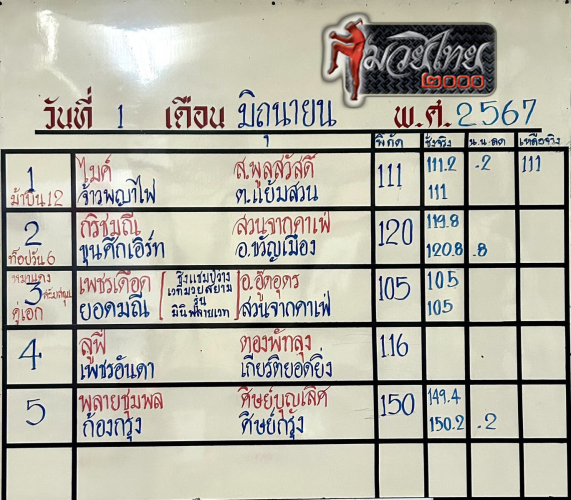 มวยไทย
๒๐๐๐
วันที่ 1 เดือน มิถุนายน พ.ศ. 2567
พิกัด ชั่งจริง น.น.ลด เหลือจริง
1 ไมค์ ส.พูลสวัสดิ์ 111 111.2 .2 111
ม้าบิน12 จ้าวพญาไฟ ต.แย้มสวน 111
2 กริชมณี สวนจากคาเฟ่ 120 119.8
ท็อปวัน6 ขุนศึกเอิร์ท อ.ขวัญเมือง 120.8 .8
3 เพชรเดือด ชิงแชมป์ว่าง อ.อู๊ดอุดร 105 105
เวทีมวยสยาม
รุ่น
คู่เอก ยอดมณี มินิฟลายเวท สวนจากคาเฟ่ 105
4 ลูฟี่ ตองพัทลุง 116
เพชรอันดา เกียรติยอดยิ่ง
5 พลายชุมพล ศิษย์บุญเลิศ 150 149.4
ก้องกรุง ศิษย์กรุง 150.2 .2